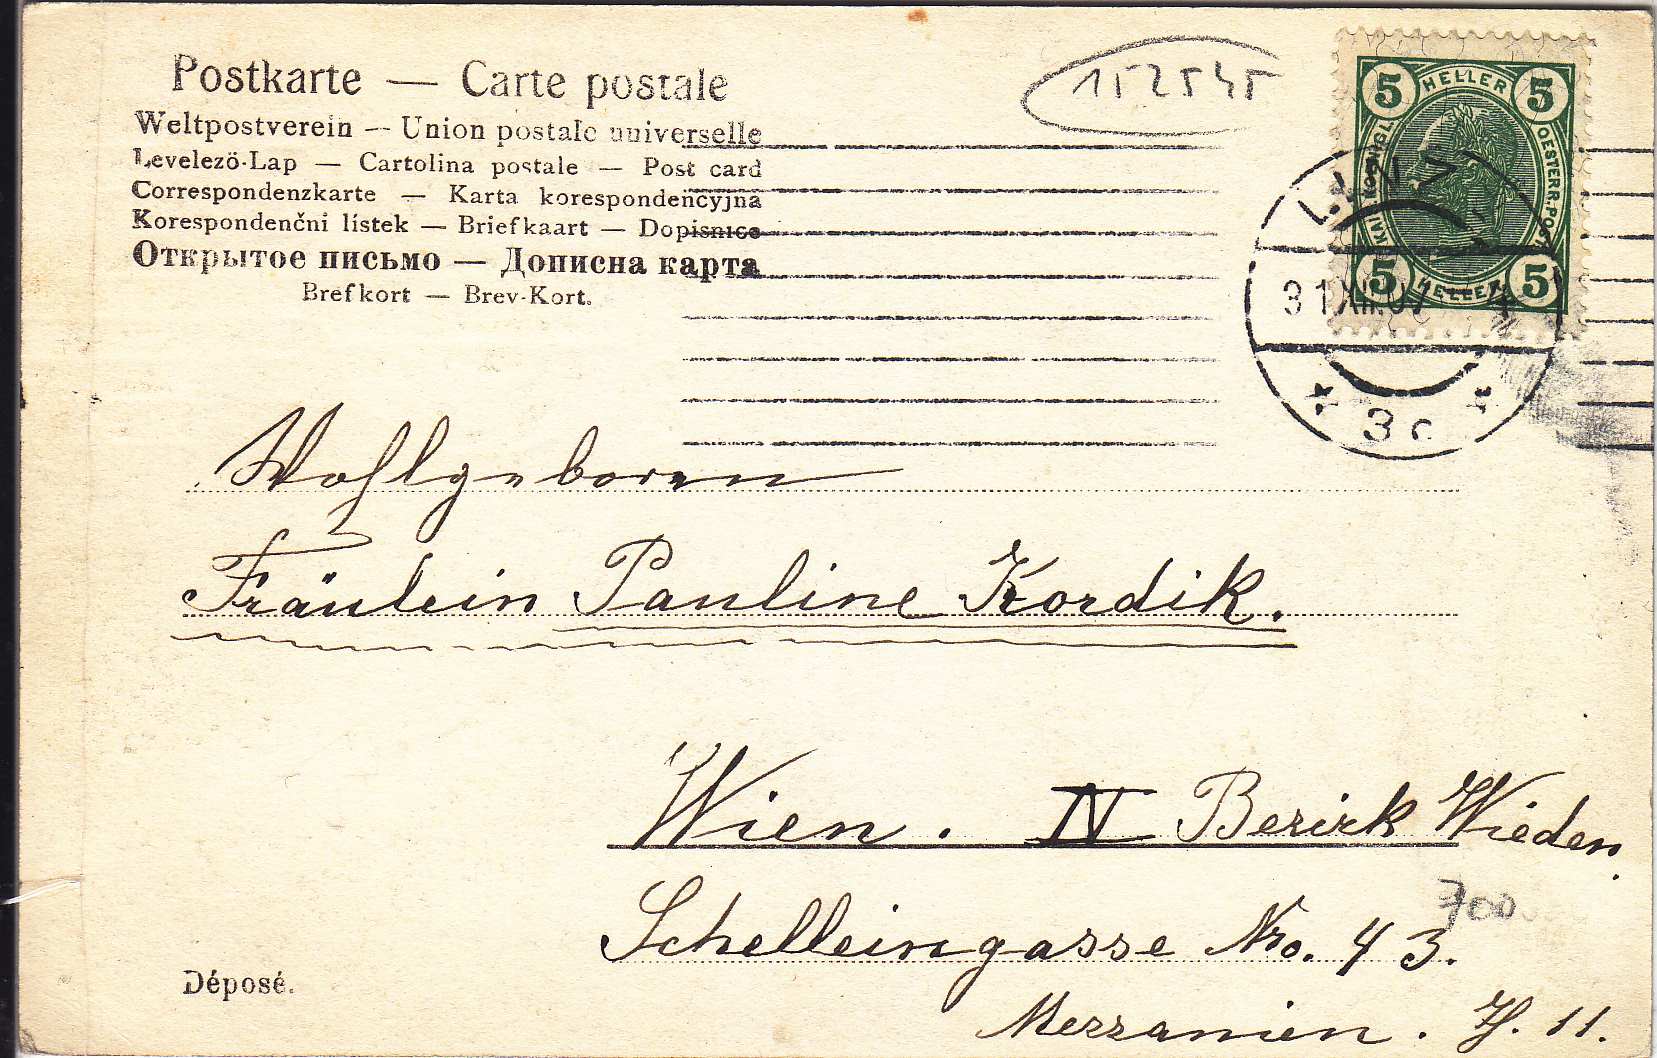 Postkarte — Carte postale
Weltpostverein — Union postale universelle
Levelező-Lap — Cartolina postale — Post card
Correspondenzkarte — Karta korespondencyjna
Korespondenčni listek — Briefkaart — Dopisnice
Открытое письмо — Дописна карта
Brefkort — Brev-Kort.
152545
5 HELLER 5
OESTERR. POST
5 HELLER 5
LINZ
31 XII 07
* 3c *
Wohlgeboren
Fräulein Pauline Kordik.
Wien. IV Bezirk Wieden.
700
Schelleingasse Nro. 43.
Mezzanien. 11.
Déposé.